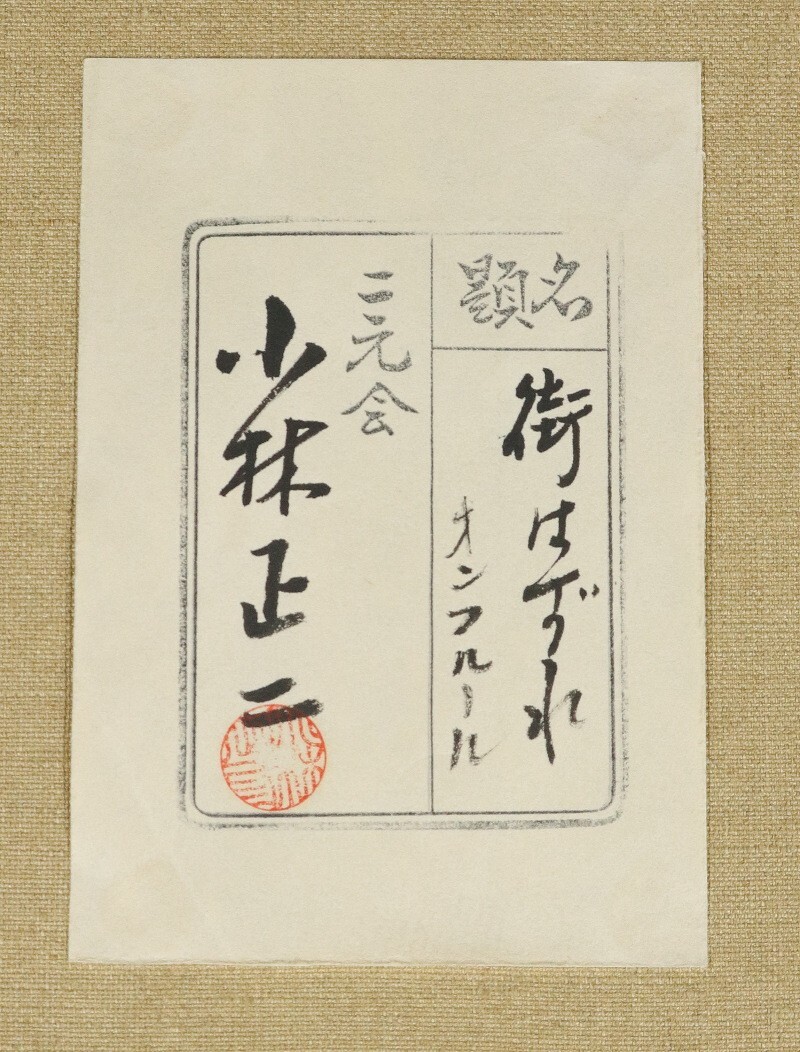 題名
街はずれ
オンフルール
二元会
小林正二